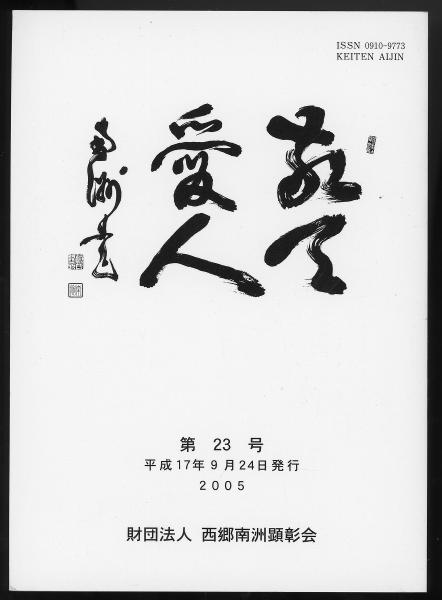 ISSN 0910-9773
KEITEN AIJIN
敬天
愛人
南洲書
第 23 号
平成17年9月24日発行
2005
財団法人 西郷南洲顕彰会